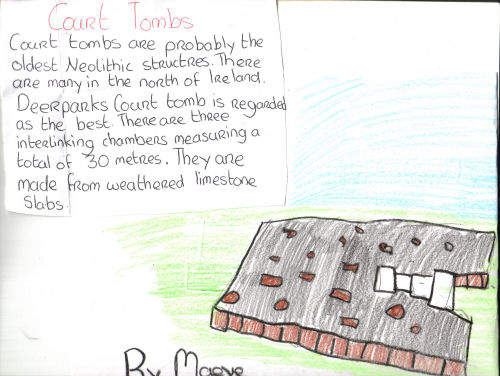 Court Tombs
Court tombs are probably the
oldest Neolithic structres. There
are many in the north of Ireland.
Deerparks Court tomb is regarded
as the best. There are three
interlinking chambers measuring a
total of 30 metres. They are
made from weathered limestone
Slabs.
By Maeve